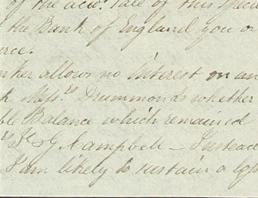 of the acc.t Sale of this speci
the Bank of England you or
erce.
nker allows no interest on an
k Mess.rs Drummonds whether
ble Balance which remained
rs J. & G. Campbell – Instead
I am likely to sustain a loss